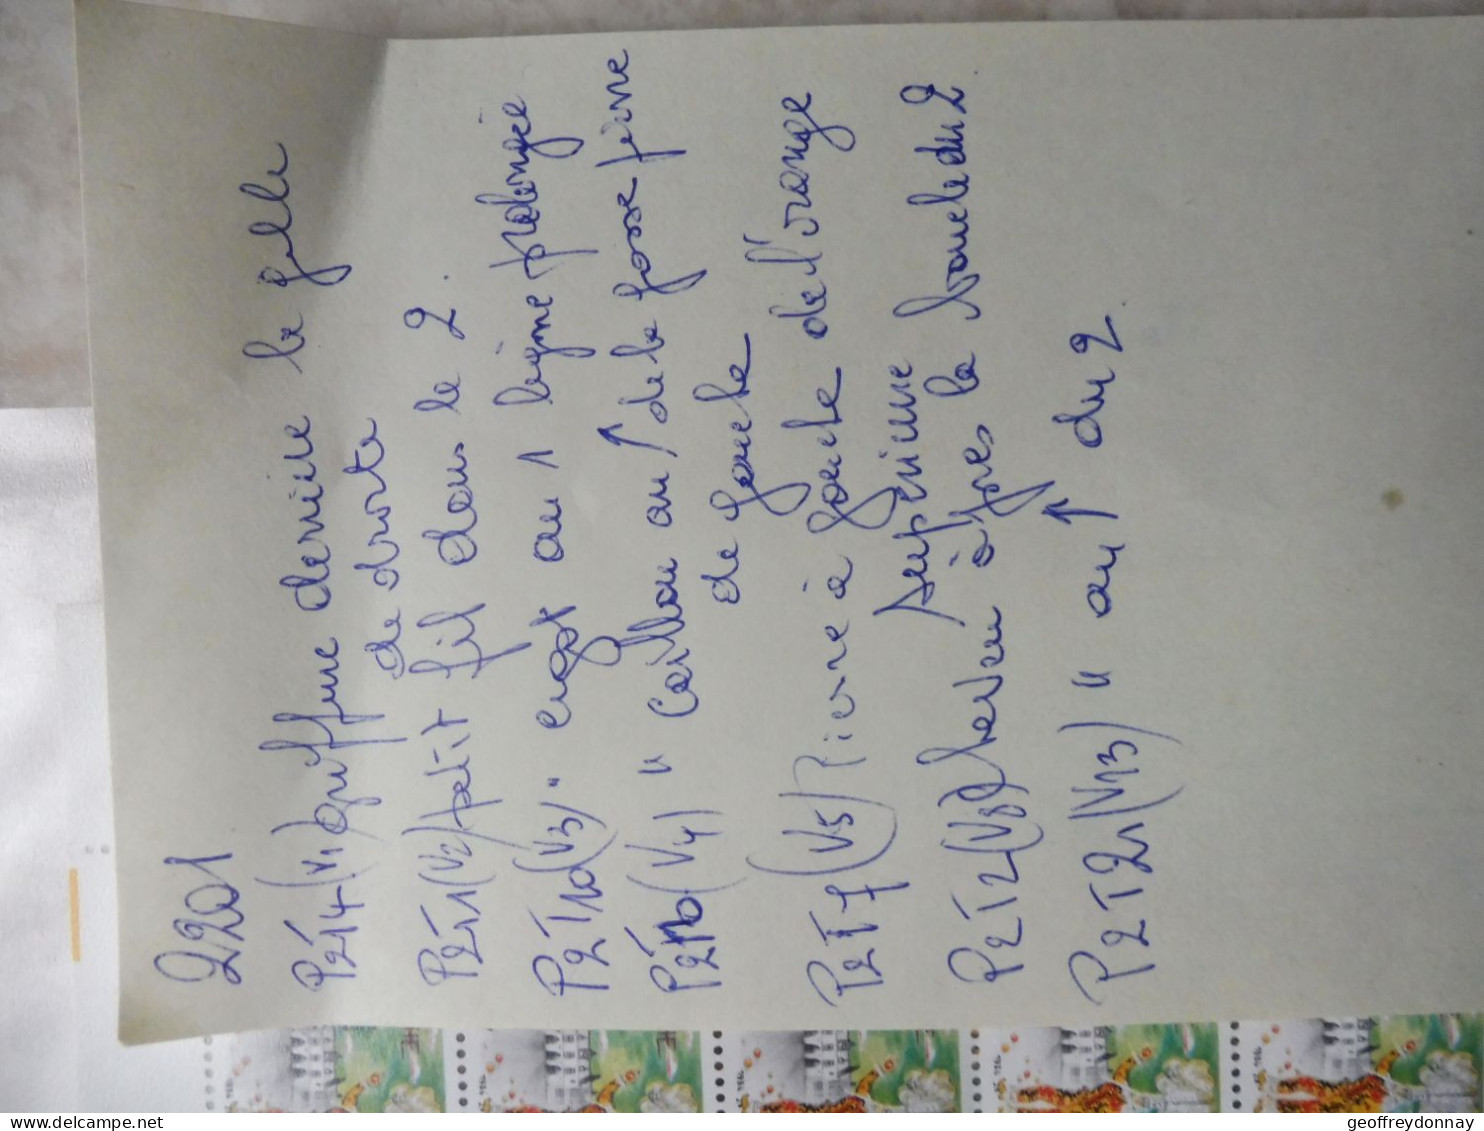 2201
P2T4 (V1) griffure derrière la fille
de droite
P2T1 (V2) petit fil dans le 2.
P2T10 (V3) " ergot au 1 ligne prolongée
(V4) " caillou au ↑ de la fosse ferme
de gauche
P2T7 (V5) Pierre à gauche de l'orange
supérieure
P2T2 (V8) cheveu après la boucle du 2
P2T2 (V13) " au ↑ du 2
geoffreydonnay